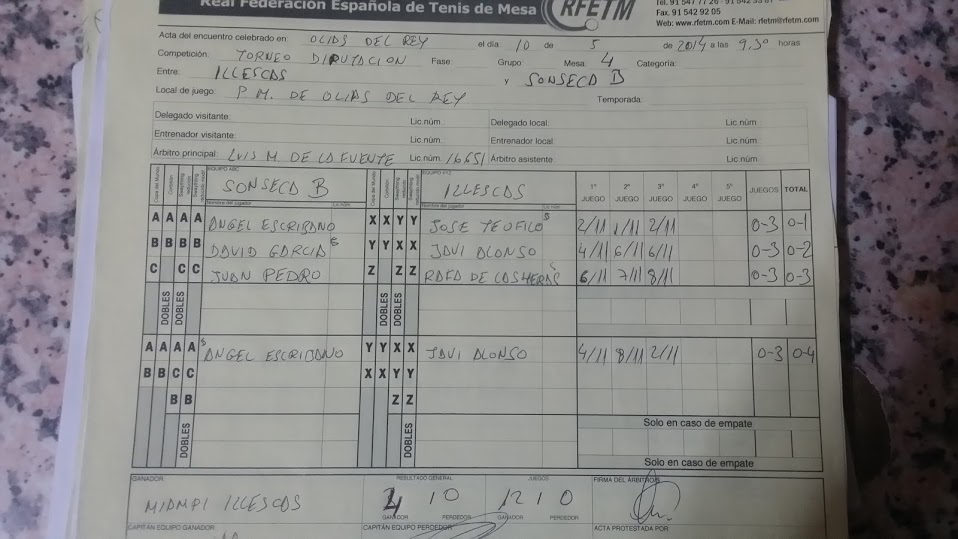 Real Federación Española de Tenis de Mesa
RFETM
Fax. 91 542 92 05
Web: www.rfetm.com E-Mail: rfetm@rfetm.com
Acta del encuentro celebrado en: OLIAS DEL REY el día 10 de 5 de 2014 a las 9,30 horas
Competición: TORNEO DIPUTACION Fase: Grupo: Mesa: 4 Categoría:
Entre: ILLESCAS y SONSECA B
Local de juego: P.M. DE OLIAS DEL REY Temporada:
Delegado visitante: Lic.núm.: Delegado local: Lic.núm.
Entrenador visitante: Lic.núm.: Entrenador local: Lic.núm.
Árbitro principal: LUIS M. DE LA FUENTE Lic.núm. 16651 Árbitro asistente: Lic.núm.
EQUIPO ABC SONSECA B EQUIPO XYZ ILLESCAS 1º JUEGO 2º JUEGO 3º JUEGO 4º JUEGO 5º JUEGO JUEGOS TOTAL
Nombre del jugador Lic.núm. Nombre del jugador Lic.núm.
A A A A ANGEL ESCRIBANO X X Y Y JOSE TEOFILO S 2/11 1/11 2/11 0-3 0-1
B B B B DAVID GARCIA S Y Y X X JAVI ALONSO 4/11 6/11 6/11 0-3 0-2
C C C JUAN PEDRO Z Z Z RAFA DE LAS HERAS S 6/11 7/11 8/11 0-3 0-3
DOBLES DOBLES DOBLES DOBLES
A A A A S ANGEL ESCRIBANO Y Y X X JAVI ALONSO 4/11 8/11 2/11 0-3 0-4
B B C C X X Y Y
B B Z Z
Solo en caso de empate
DOBLES DOBLES
Solo en caso de empate
GANADOR: RESULTADO GENERAL JUEGOS FIRMA DEL ÁRBITRO
ILLESCAS 4 0 12 0
GANADOR PERDEDOR GANADOR PERDEDOR
CAPITÁN EQUIPO GANADOR CAPITÁN EQUIPO PERDEDOR ACTA PROTESTADA POR: